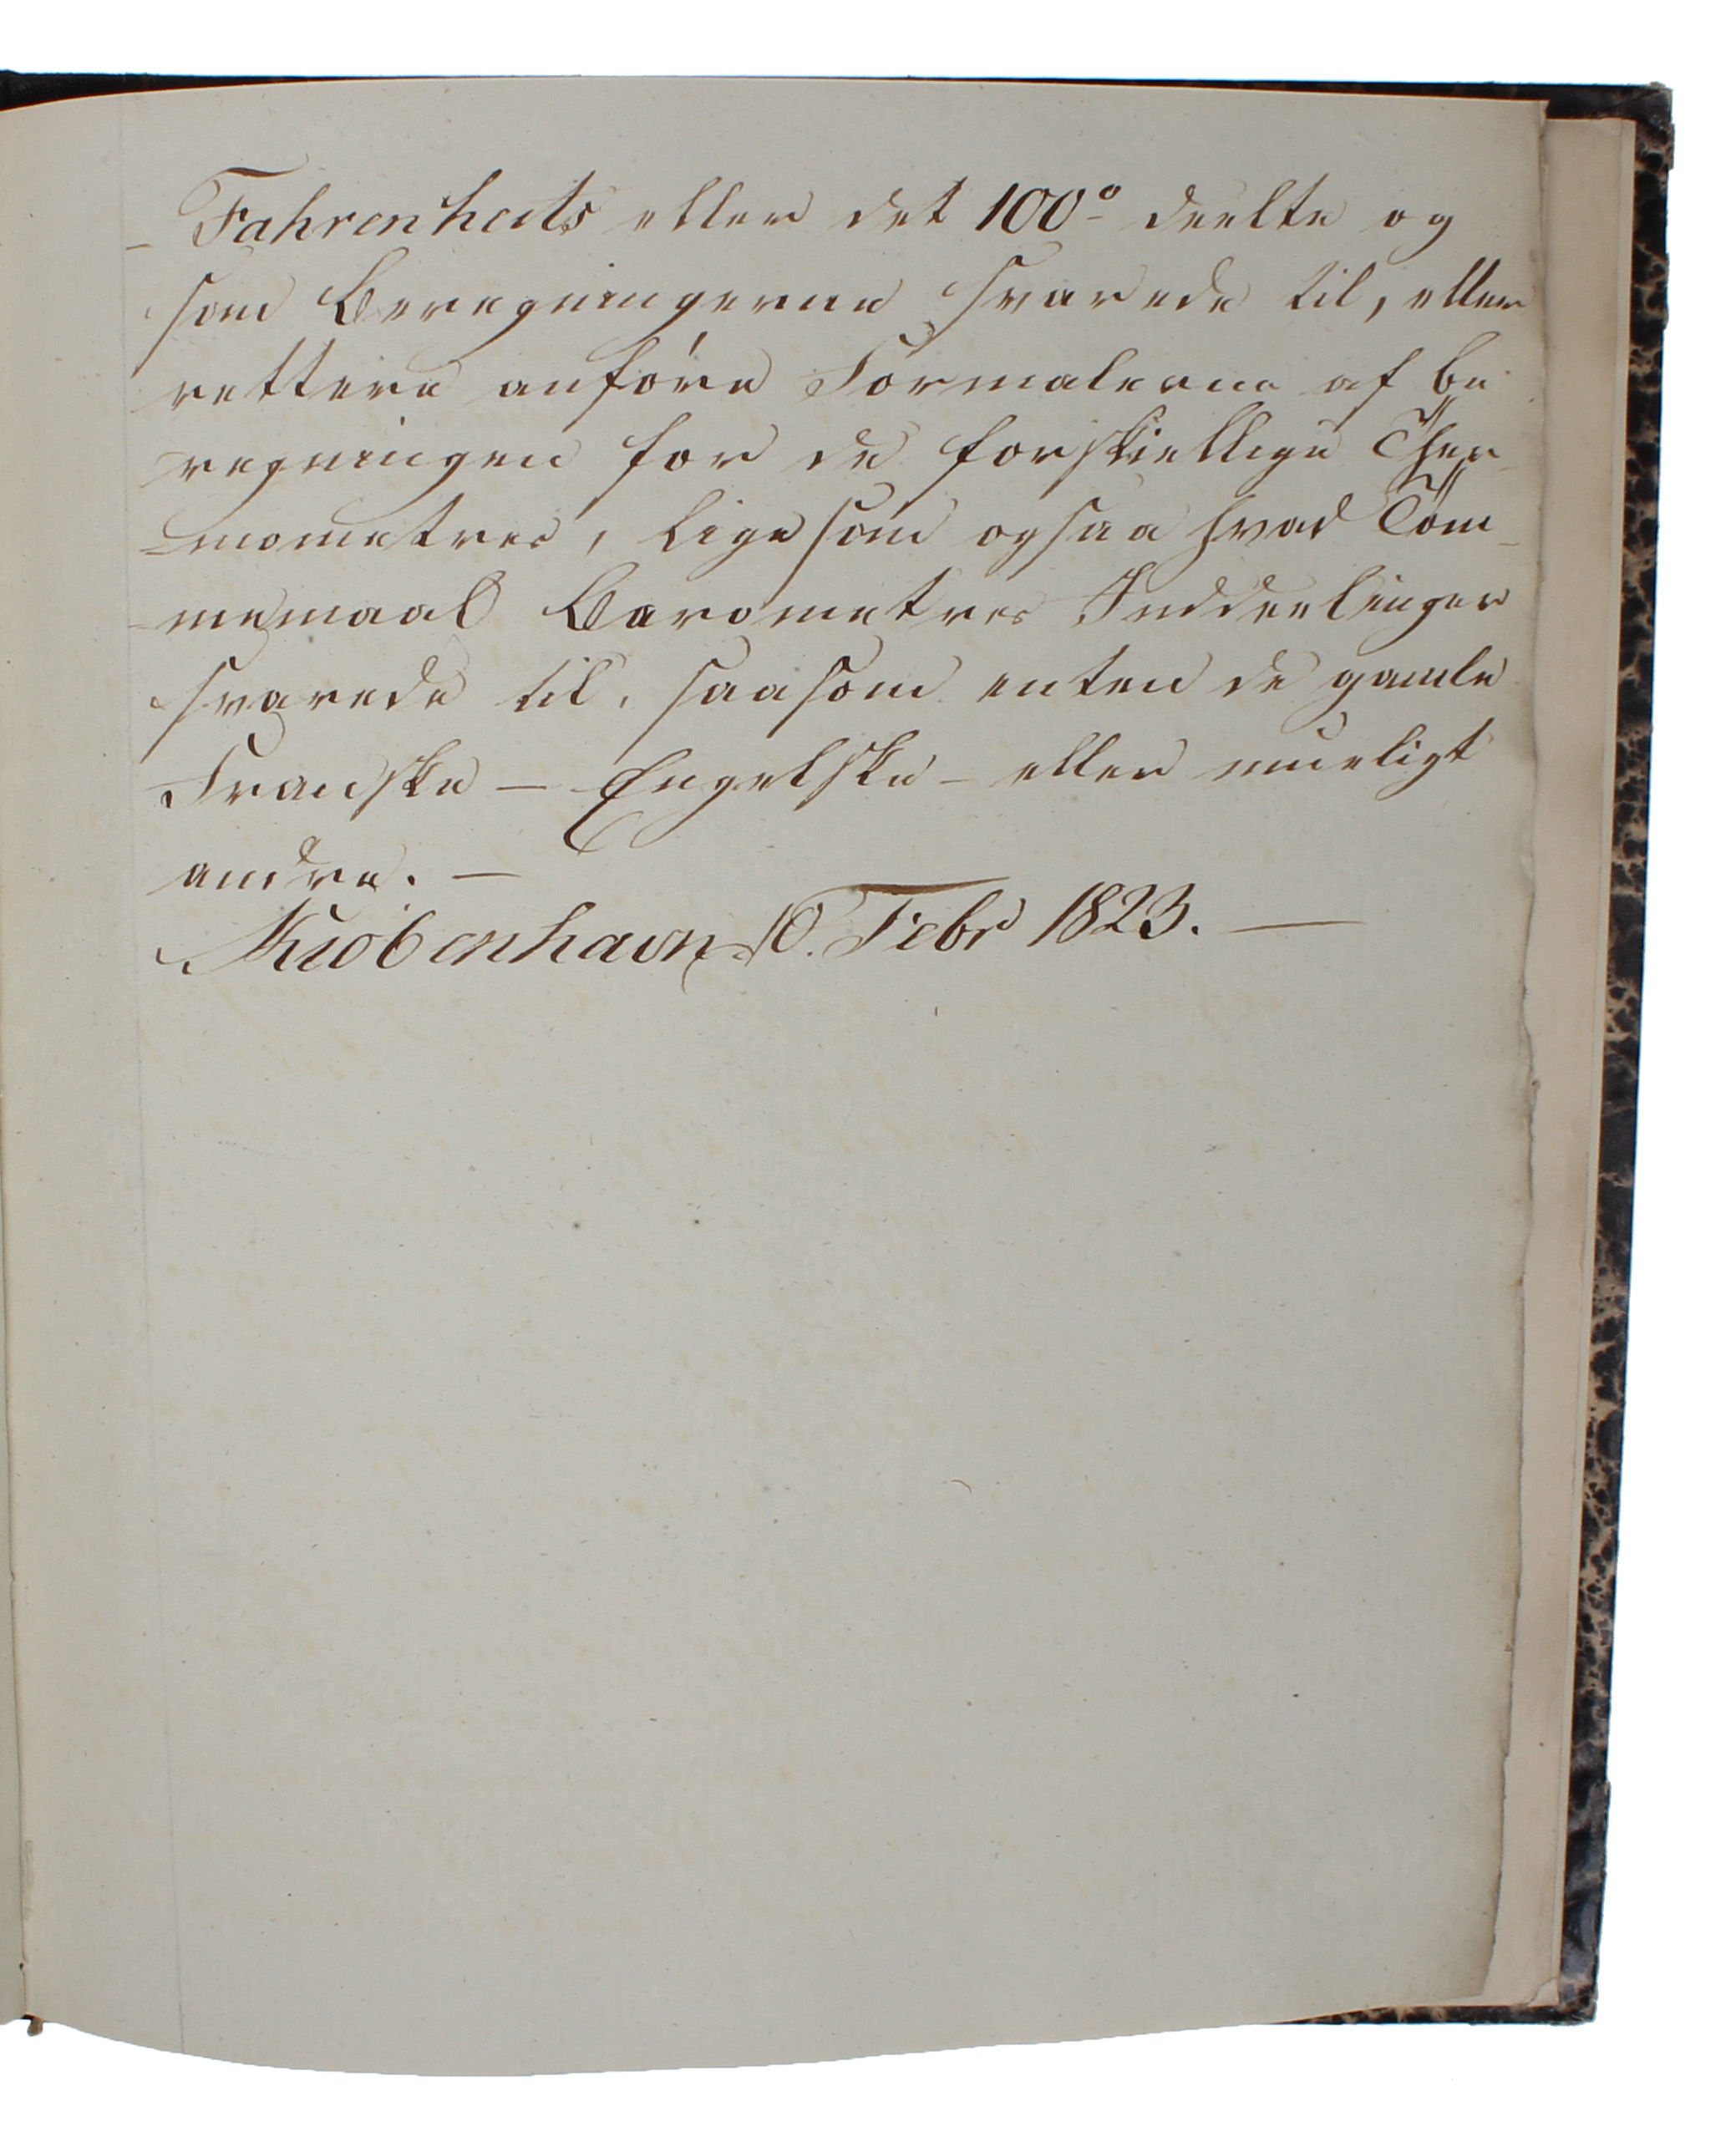 – Fahrenheits eller det 100° deelte og
som Beregningerne svarede til, eller
rettere anføre Formalerne af be
regningen for de forskiellige Ther-
mometres, ligesom ogsaa hvad Tom-
memaal Barometres Inddeelinger
svarede til, saasom enten de gamle
Franske – Engelske – eller mueligt
andre. –
Kiøbenhavn 10. Febr 1823. –